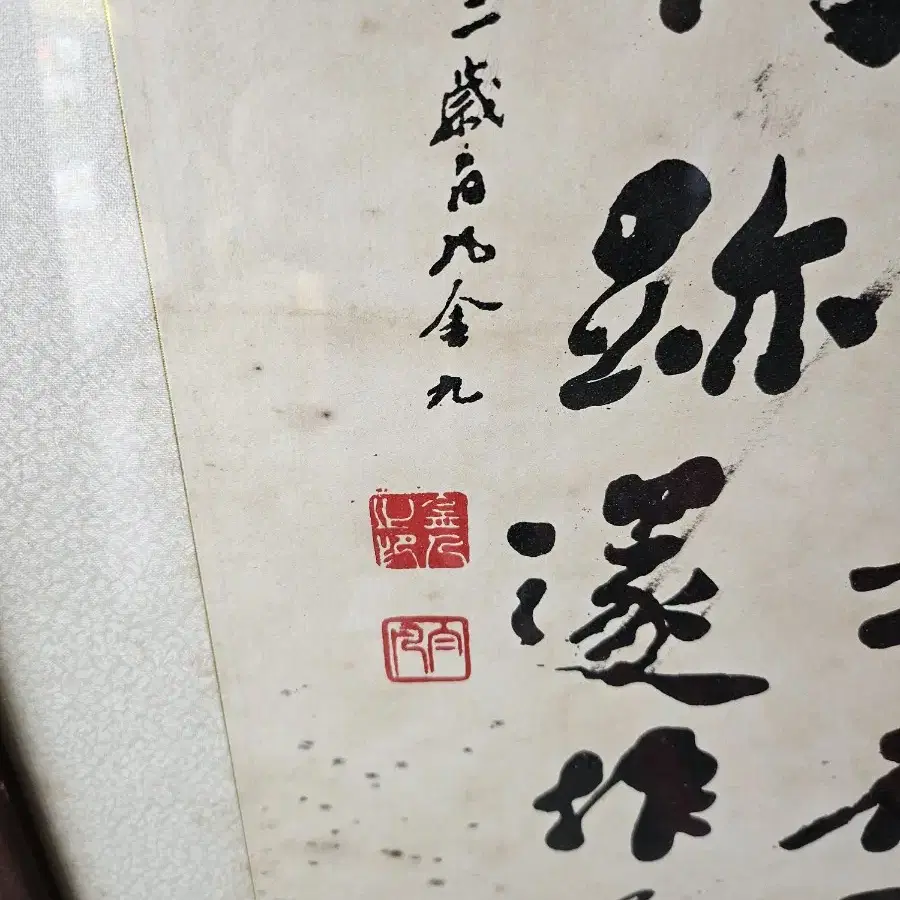 跡遂作
二歲白凡金九
金九之印
白凡